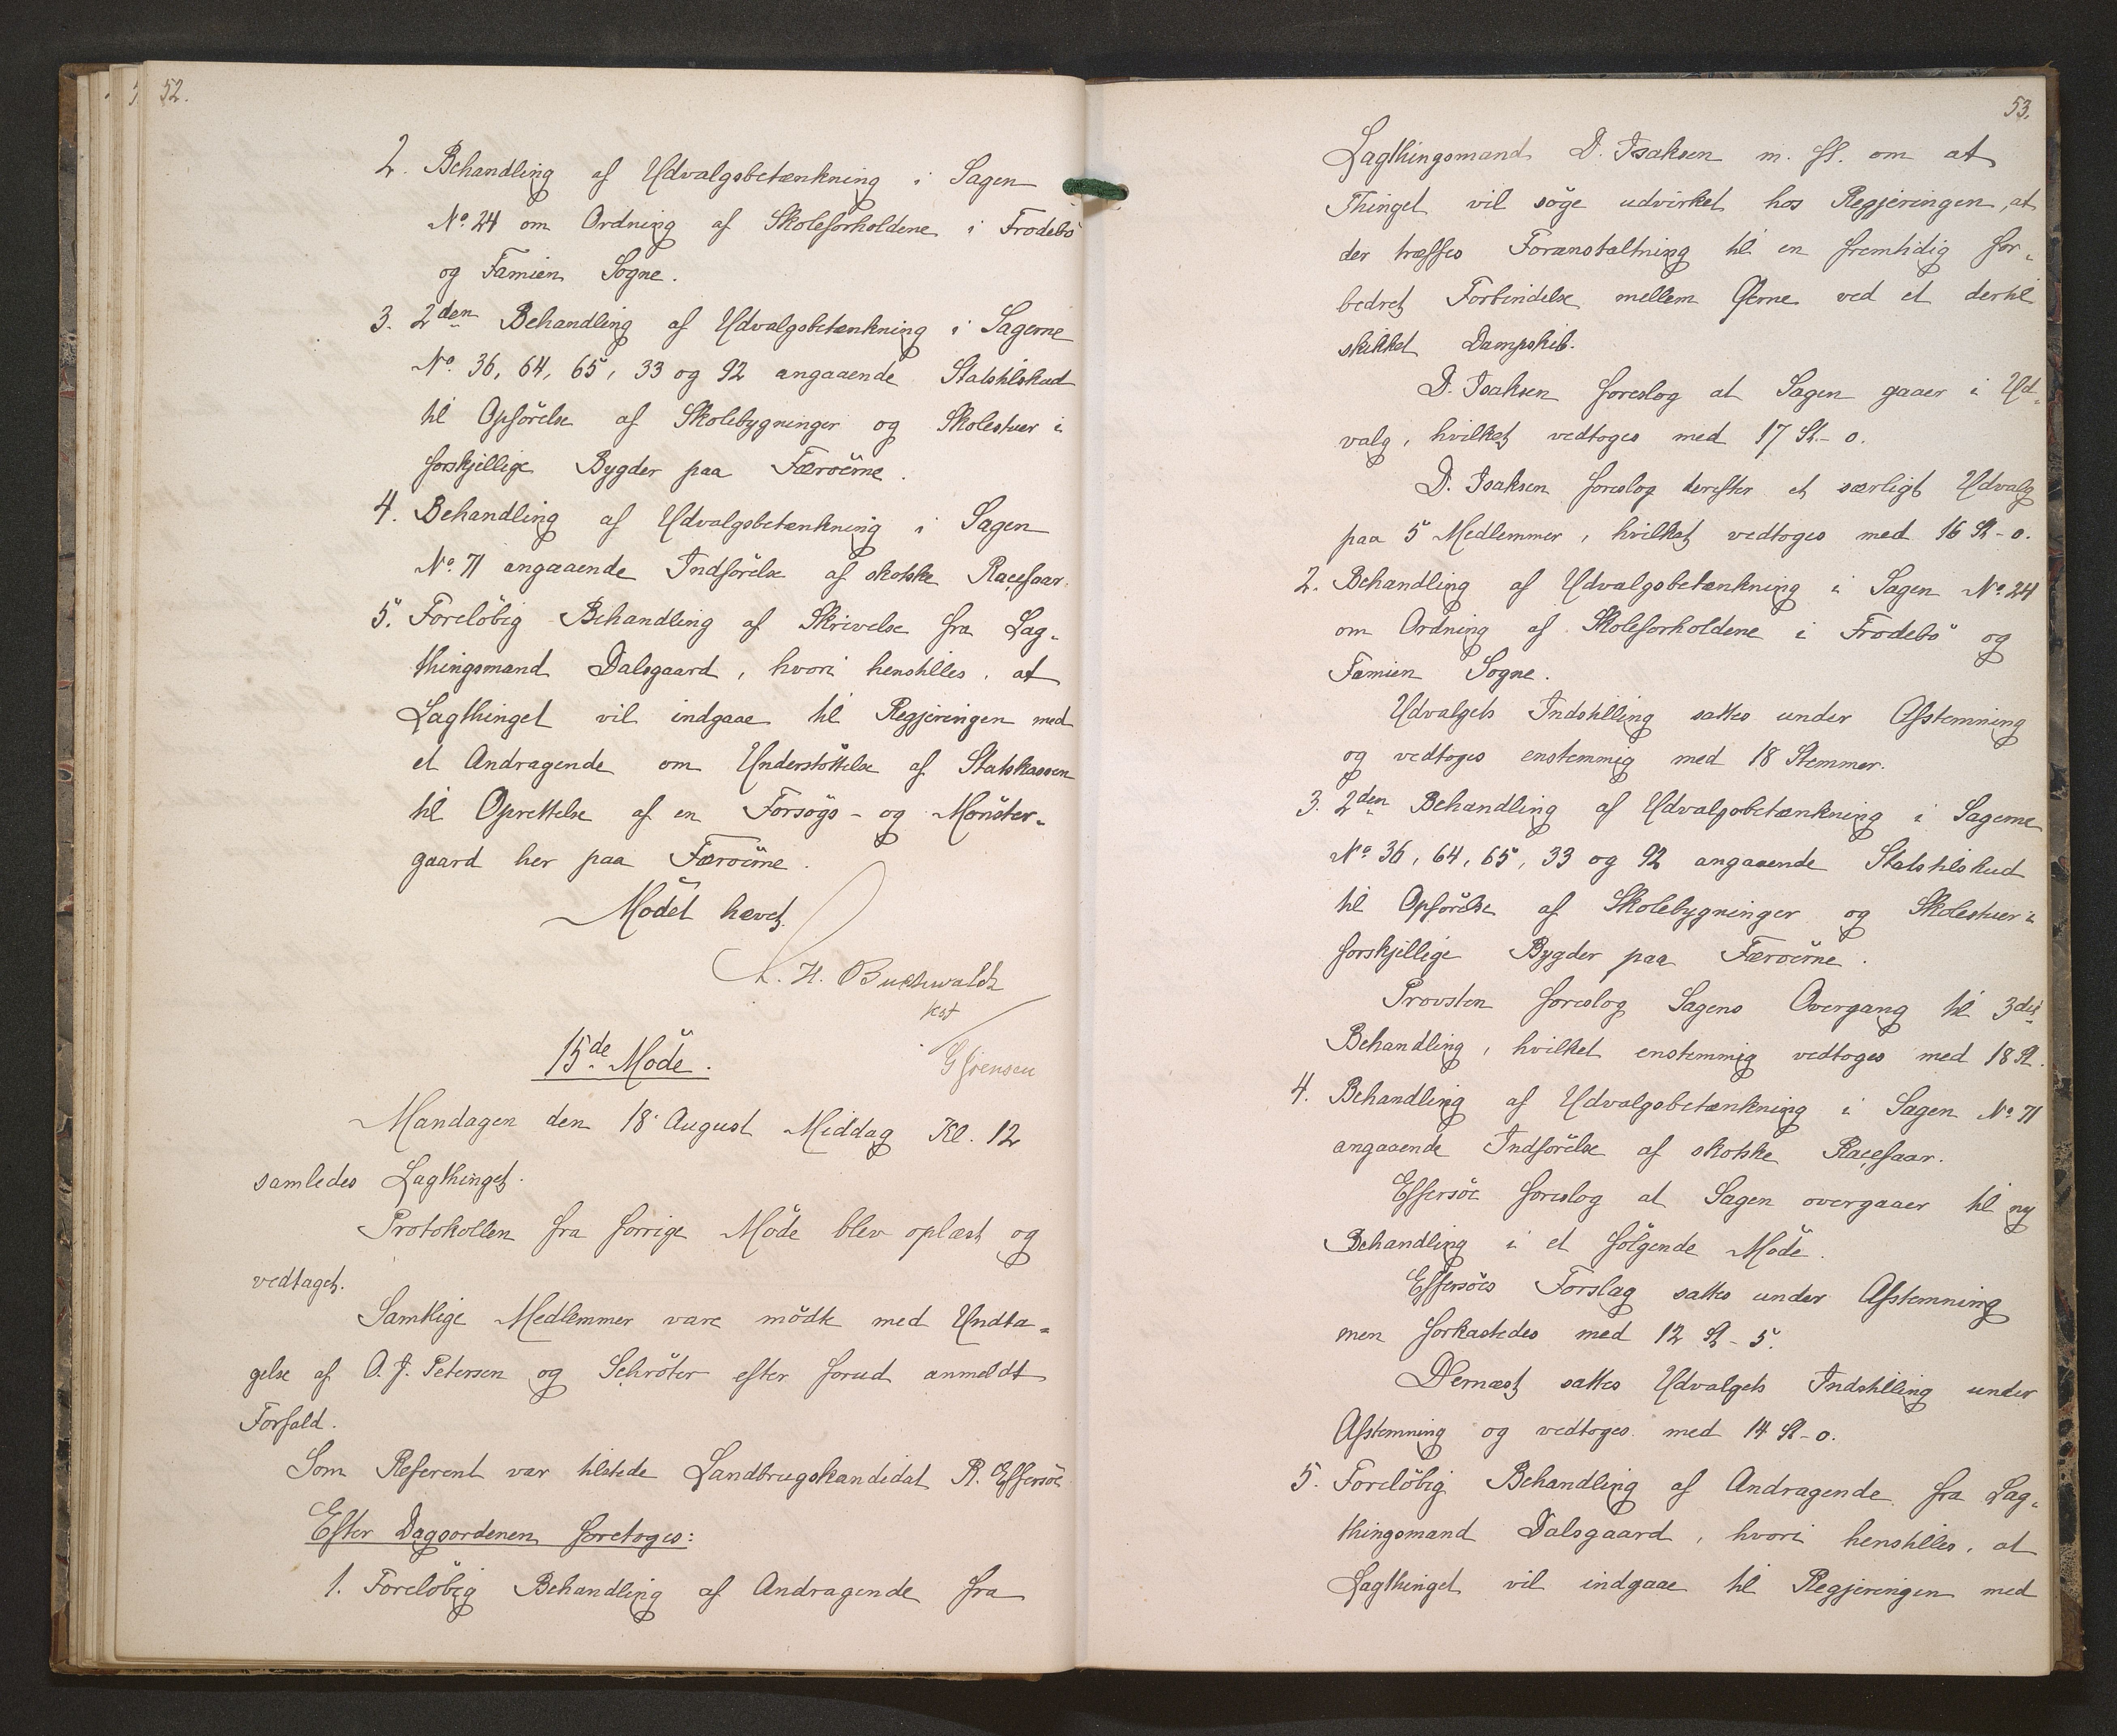 52.
2. Behandling af Udvalgsbetænkning i Sagen
No. 24 om Ordning af Skoleforholdene i Frodebö
og Famien Sogne.
3. 2den Behandling af Udvalgsbetænkning i Sagerne
No. 36, 64, 65, 33 og 92 angaaende Statstilskud
til Opförelse af Skolebygninger og Skolestuer i
forskjellige Bygder paa Færöerne.
4. Behandling af Udvalgsbetænkning i Sagen
No. 71 angaaende Indförelse af skotske Racefaar.
5. Forelöbig Behandling af Skrivelse fra Lag-
thingsmand Dalsgaard, hvori henstilles, at
Lagthinget vil indgaae til Regjeringen med
et Andragende om Understöttelse af Statskassen
til Oprettelse af en Forsögs- og Mönster-
gaard her paa Færöerne.
Mödet hævet.
C. H. Buchwaldt
kst
G Jensen
15de Möde.
Mandagen den 18. August Middag Kl. 12
samledes Lagthinget.
Protokollen fra forrige Möde blev oplæst og
vedtaget.
Samtlige Medlemmer vare mödte med Undta-
gelse af O. J. Petersen og Schröter efter forud anmeldt
Forfald.
Som Referent var tilstede Landbrugskandidat R. Effersöe
Efter Dagsordenen foretoges:
1. Forelöbig Behandling af Andragende fra
53.
Lagthingsmand D. Isaksen m. fl. om at
Thinget vil söge udvirket hos Regjeringen, at
der træffes Foranstaltning til en fremtidig for-
bedret Forbindelse mellem Öerne ved et dertil
skikket Dampskib.
D. Isaksen foreslog at Sagen gaaer i Ud-
valg, hvilket vedtoges med 17 St - 0.
D. Isaksen foreslog derefter et særligt Udvalg
paa 5 Medlemmer, hvilket vedtoges med 16 St - 0.
2. Behandling af Udvalgsbetænkning i Sagen No. 24
om Ordning af Skoleforholdene i Frodebö og
Famien Sogne.
Udvalgets Indstilling sattes under Afstemning
og vedtoges enstemmig med 18 Stemmer.
3. 2den Behandling af Udvalgsbetænkning i Sagerne
No. 36, 64, 65, 33 og 92 angaaende Statstilskud
til Opförelse af Skolebygninger og Skolestuer i
forskjellige Bygder paa Færöerne.
Provsten foreslog Sagens Overgang til 3die
Behandling, hvilket enstemmig vedtoges med 18 St.
4. Behandling af Udvalgsbetænkning i Sagen No. 71
angaaende Indförelse af skotske Racefaar.
Effersöe foreslog at Sagen overgaaer til ny
Behandling i et fölgende Möde.
Effersöes Forslag sattes under Afstemning
men forkastedes med 12 St - 5.
Dernæst sattes Udvalgets Indstilling under
Afstemning og vedtoges med 14 St - 0.
5. Forelöbig Behandling af Andragende fra Lag-
thingsmand Dalsgaard, hvori henstilles, at
Lagthinget vil indgaae til Regjeringen med